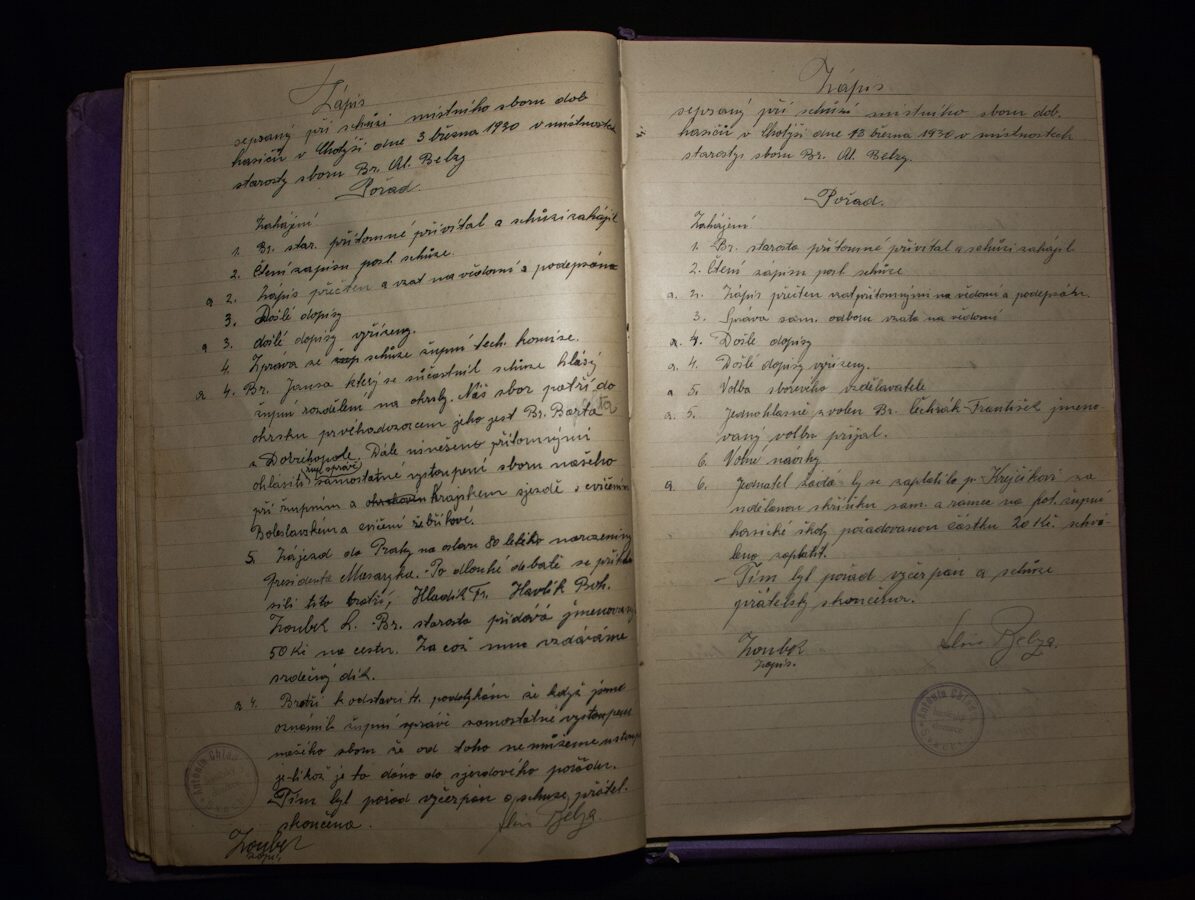 Zápis
sepsaný při schůzi místního sboru dob
hasičů v Chotýši dne 3 března 1930 v místnostech
starosty sboru Br. Al. Belzy
Pořad.
Zahájení
1. Br. star. přítomné přivítal a schůzi zahájil
2. Čtení zápisu posl. schůze.
a 2. Zápis přečten a vzat na vědomí a podepsán
3. Došlé dopisy
a 3. došlé dopisy vyřízeny.
4. Zpráva ze schůze župní tech. komise.
a 4. Br. Jansa který se súčastnil schůze hlásý
župní rozdělem na okrsky. Náš sbor patří do
okrsku prvého dozorcem jeho jest Br. Barta
z Dobrihopole. Dále usnešeno přítomnými
ohlasiti žup. správě samostatné vystoupení sboru našeho
při župním a krajskem sjezdě s cvičením
Boleslavském a cvičení žebříkové.
5. Zájezd do Prahy na oslavu 80 letého narozeniny
Presidenta Masaryka. - Po dlouhé debatě se přihlá
sili tito bratří, Hladík Fr. Havlík Boh.
Zoubek K. - Br. starosta přidává jmenovaný
50 Kč na cestu. Za což mu vzdáváme
srdečný dík.
a 4. Bratři k odstavci 4. podotýkám že když jsme
oznámili župní správě samostatné vystoupení
našeho sboru že od toho nemůžeme ustoup
je-likož je to dáno do sjezdového pořadu.
- Tím byl pořad vyčerpán a schuze přátel.
skončena.
Zoubek
zapis.
Antonín Chlad
Zápis
sepsaný při schůzi místního sboru dob.
hasičů v Chotýši dne 13 března 1930 v místnostech
starosty sboru Br. Al. Belzy.
Pořad.
Zahájení
1. Br. starosta přítomné přivítal a schůzi zahájil.
2. Čtení zápisu posl. schůze
a. 2. Zápis přečten vzat přítomnými na vědomí a podepsán.
3. Správa sam. odboru vzata na vědomí
a. 4. Došlé dopisy
a. 4. Došlé dopisy vyřízeny.
a 5. Volba sborového vzdělavatele
a. 5. Jednohlasně zvolen Br. Čihrák František jmeno
vaný volbu přijal.
6. Volné návrhy
a. 6. Jednatel žádá by se zaplatilo p. Krejčikovi za
udělanou skříňku sam. a ramce na fot. župní
hasičské školy požadovanou častku 20 Kč. schvá-
leno zaplatit.
- Tím byl pořad vyčerpán a schůze
přátelsky skončena.
Zoubek
zapis.
Belza.
Antonín Chlad